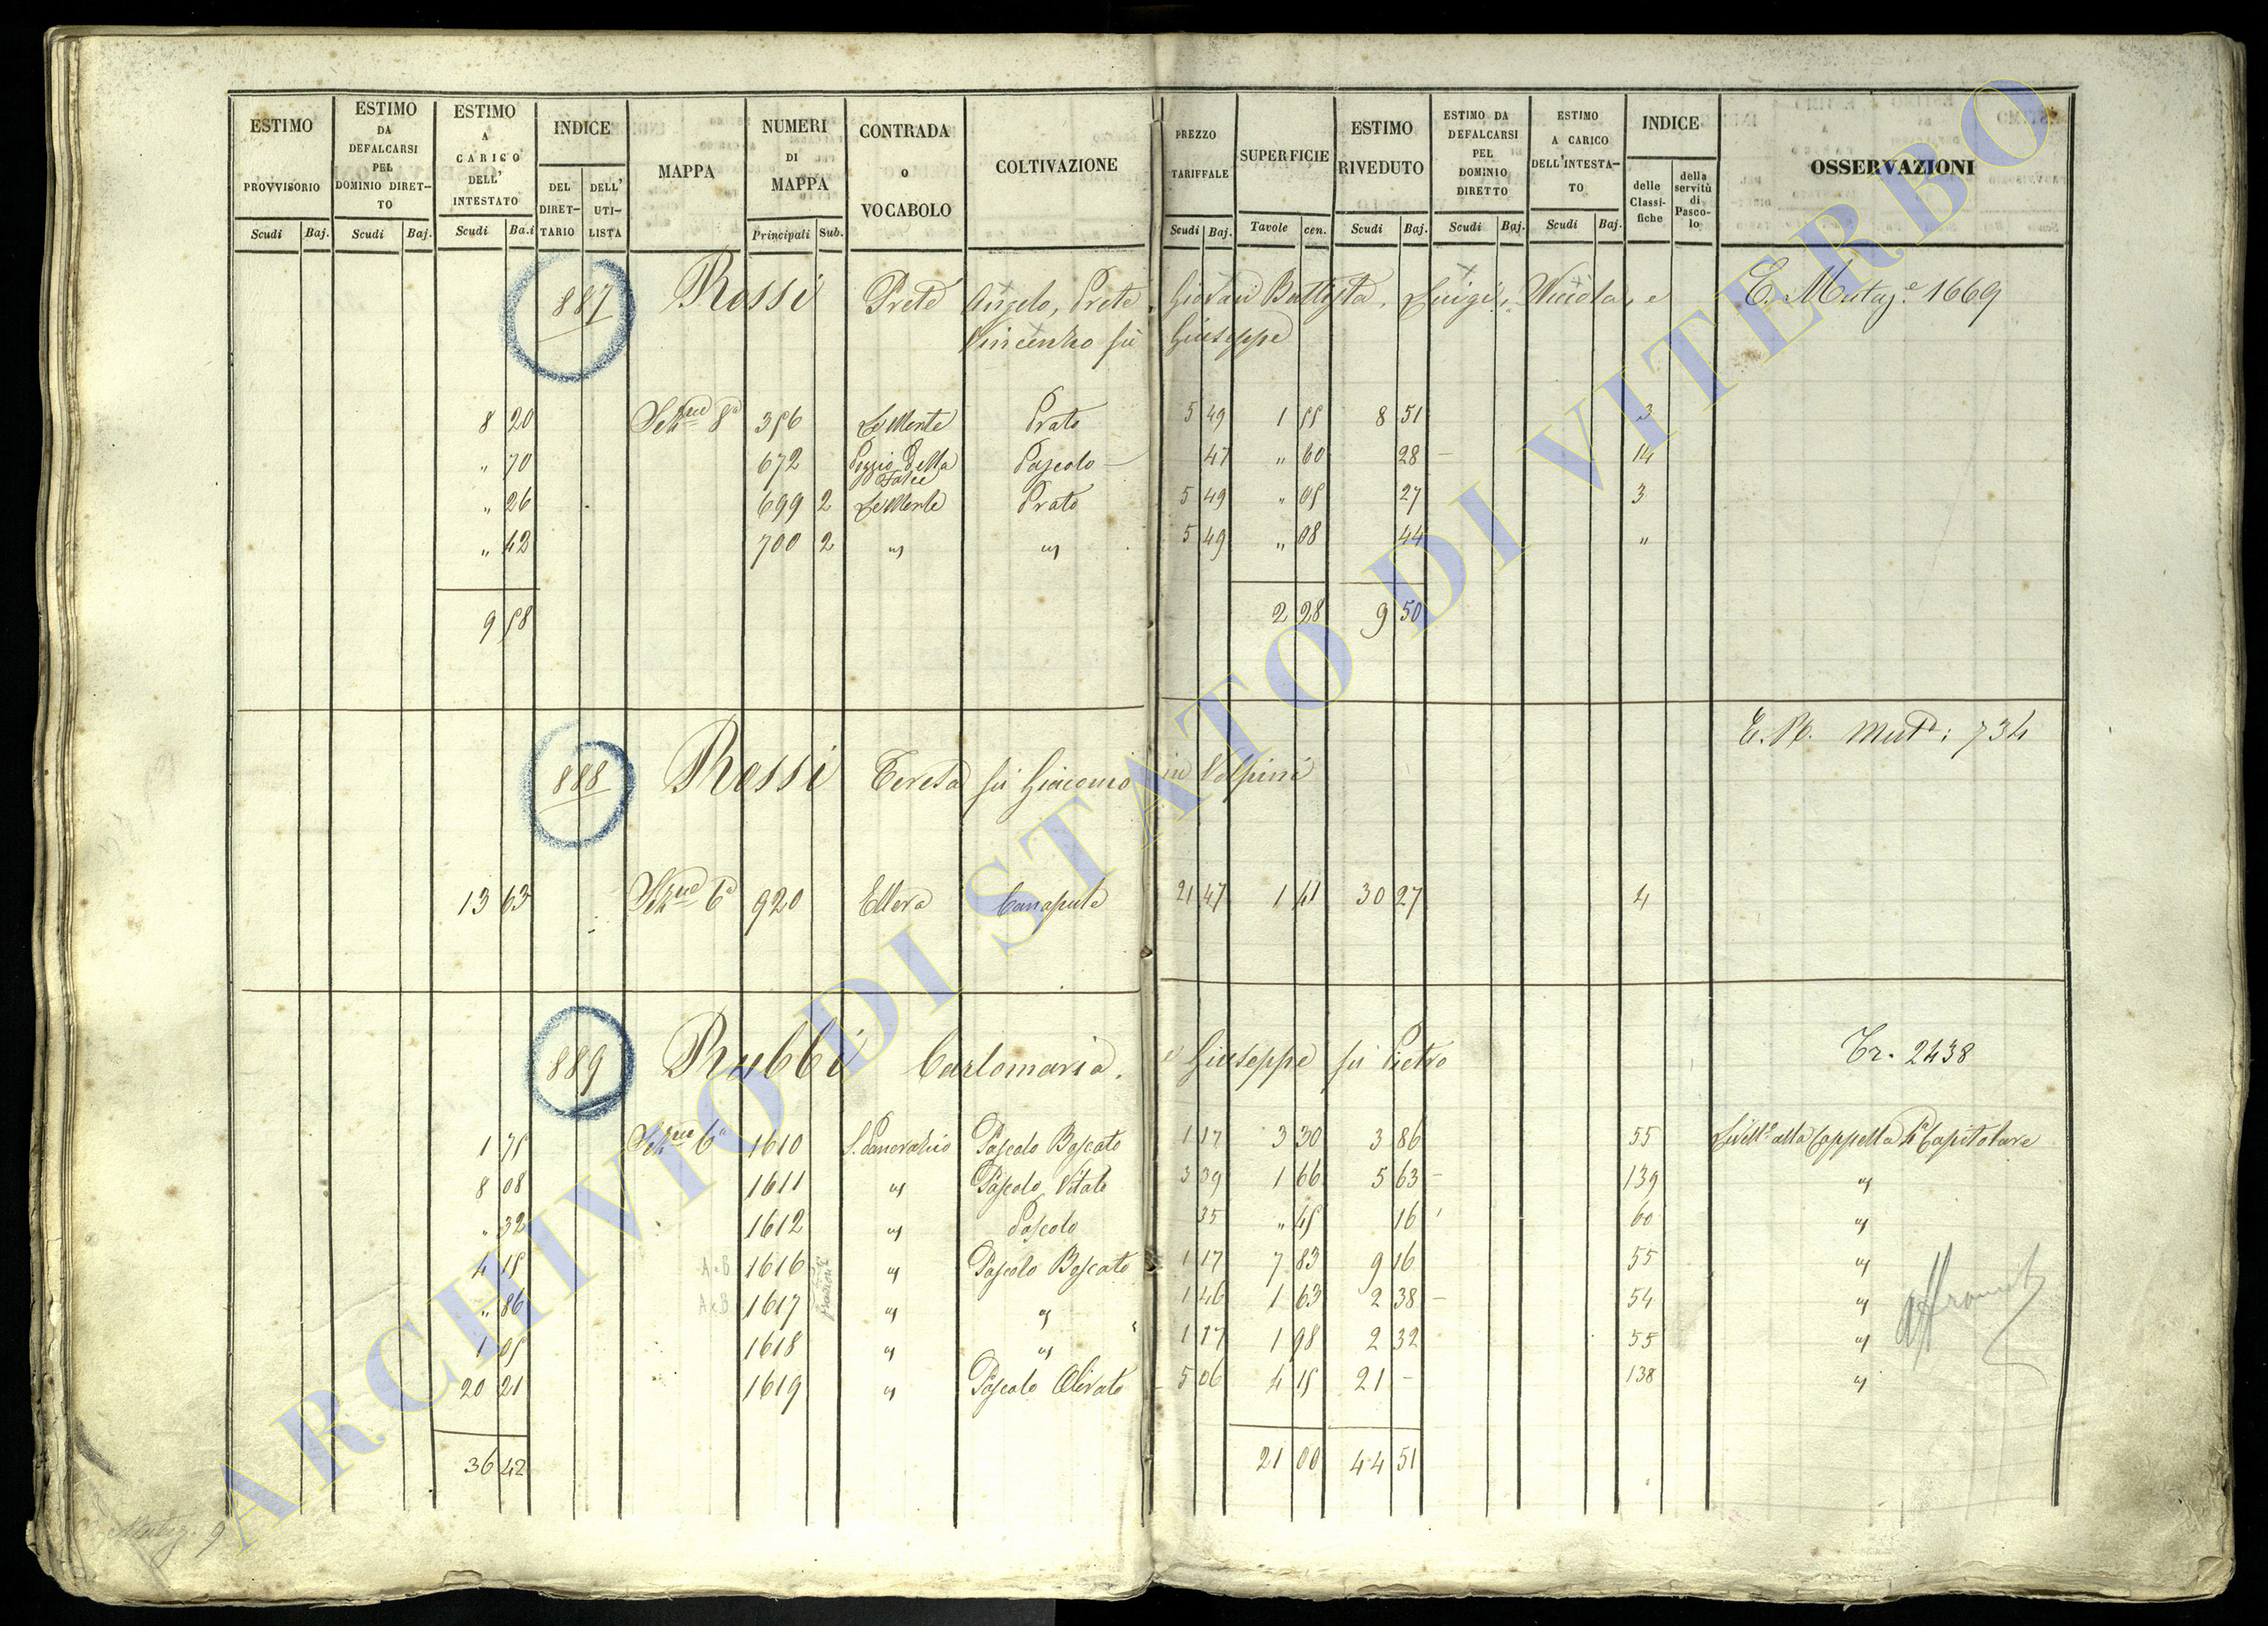 ESTIMO PROVVISORIO | ESTIMO DA DEFALCARSI PEL DOMINIO DIRET- TO | ESTIMO A CARICO DELL' INTESTATO | INDICE | MAPPA | NUMERI DI MAPPA | CONTRADA o VOCABOLO | COLTIVAZIONE | PREZZO TARIFFALE | SUPERFICIE | ESTIMO RIVEDUTO | ESTIMO DA DEFALCARSI PEL DOMINIO DIRETTO | ESTIMO A CARICO DELL'INTESTA- TO | INDICE | OSSERVAZIONI
DEL DIRET- TARIO | DELL' UTI- LISTA | delle Classi- fiche | della servitù di Pasco- lo
Scudi | Baj. | Scudi | Baj. | Scudi | Ba.i | Principali | Sub. | Scudi | Baj. | Tavole | cen. | Scudi | Baj. | Scudi | Baj. | Scudi | Baj.
887 Rossi Prete Angelo, Prete Giovan Battista, Luigi, Niccola, e E. Mutaz.e 1669
Vincenzo fù Giuseppe
8 20 | Sez.ne 8a | 356 | Le Mente | Prato | 5 49 | 1 55 | 8 51 | 3
" 70 | 672 | Poggio Della Falce | Pascolo | 47 | " 60 | 28 | 14
" 26 | 699 2 | Le Mente | Prato | 5 49 | " 05 | 27 | 3
" 42 | 700 2 | " | " | 5 49 | " 08 | 44 | "
9 58 | 2 28 | 9 50
E. R. Mut.: 734
888 Rossi Teresa fù Giacomo in Volpini
13 63 | Sez.ne 6a | 920 | Ellera | Canapule | 21 47 | 1 41 | 30 27 | 4
889 Rubbi Carlomaria, e Giuseppe fù Pietro Tr. 2438
1 75 | Sez.ne 6a | 1610 | S. Pancrazio | Pascolo Boscato | 1 17 | 3 30 | 3 86 | 55 | Livell.o alla Cappella Capitolare
8 08 | 1611 | " | Pascolo Vitato | 3 39 | 1 66 | 5 63 | 139 | "
" 32 | 1612 | " | Pascolo | 35 | " 45 | 16 | 60 | "
4 15 | A e B | 1616 | " | Pascolo Boscato | 1 17 | 7 83 | 9 16 | 55 | "
" 86 | A e B | 1617 | " | " | 1 46 | 1 63 | 2 38 | 54 | "
1 05 | 1618 | " | " | 1 17 | 1 98 | 2 32 | 55 | "
20 21 | 1619 | " | Pascolo Olivato | 5 06 | 4 15 | 21 - | 138 | "
36 42 | 21 00 | 44 51
ARCHIVIO DI STATO DI VITERBO